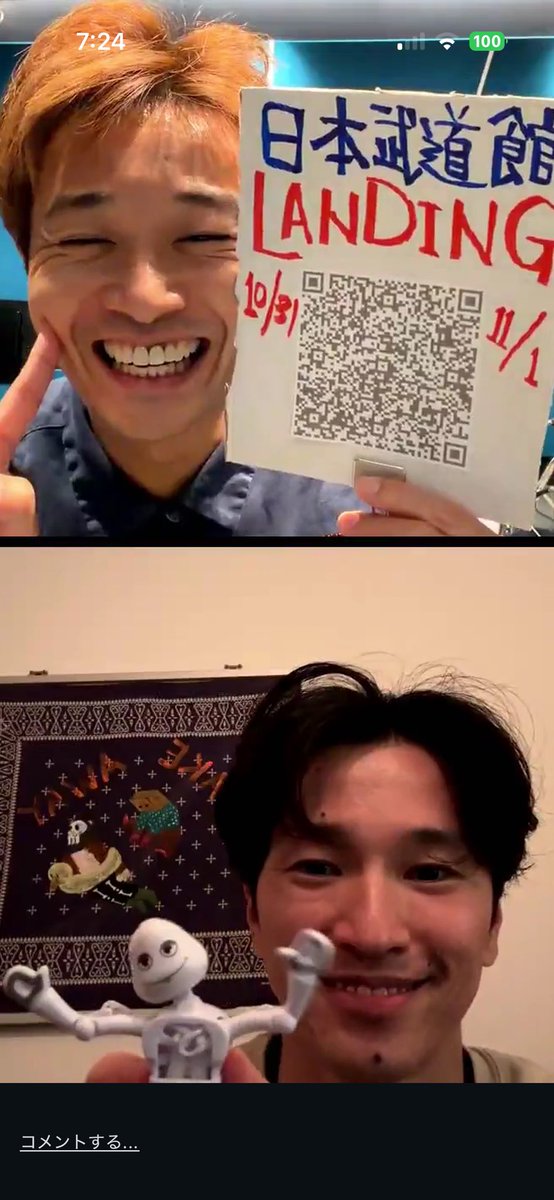 7:24
100
日本武道館
LANDING
10/31
11/1
コメントする...